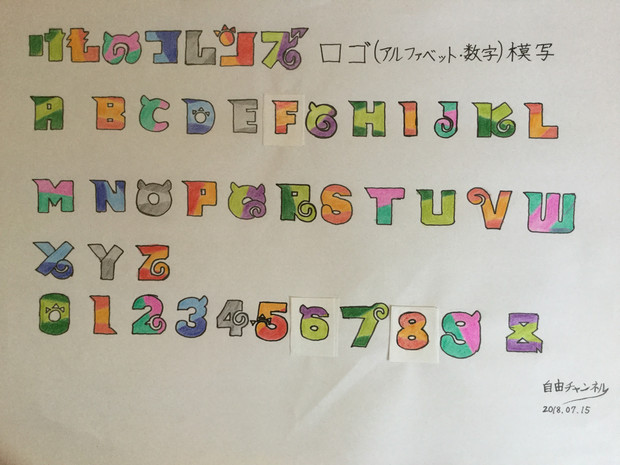 けものフレンズ ロゴ(アルファベット・数字)模写
A B C D E F G H I J K L
M N O P Q R S T U V W
X Y Z
0 1 2 3 4 5 6 7 8 9
自由チャンネル
2018.07.15